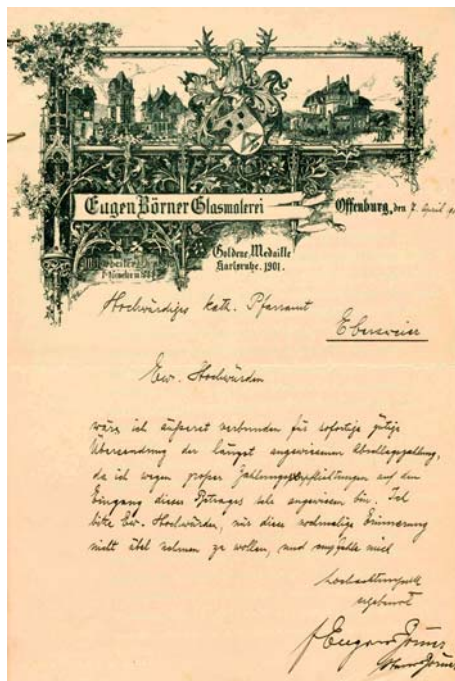 Eugen Börner Glasmalerei
Offenburg, den 7. April
Goldene Medaille
Karlsruhe. 1901.
Hochwürdiges kath. Pfarramt
Ebersweier
Ew. Hochwürden
wäre ich äußerst verbunden für sofortige gütige
Übersendung der längst angewiesenen Abschlagszahlung,
da ich wegen großer Zahlungsverpflichtungen auf den
Eingang dieses Betrages sehr angewiesen bin. Ich
bitte Ew. Hochwürden, mir diese nochmalige Erinnerung
nicht übel nehmen zu wollen, und empfehle mich
hochachtungsvollst
ergebenst
Eugen Börner